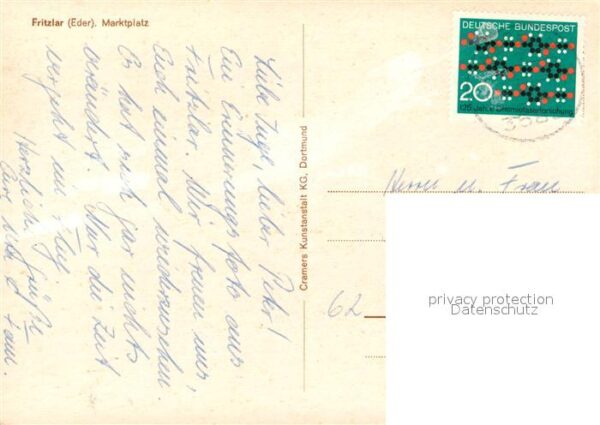 Fritzlar (Eder). Marktplatz
Liebe Inge, lieber Peter!
Ein Erinnerungsfoto aus
Fritzlar. Wir freuen uns,
Euch einmal wiederzusehen.
Es hat sich gar nichts
verändert. Nur die Zeit
vergeht im Flug
Herzlich Grüße
Eure
Cramers Kunstanstalt KG, Dortmund
DEUTSCHE BUNDESPOST
20
125 Jahre Chemiefaserforschung
Herrn u. Frau
62
privacy protection
Datenschutz